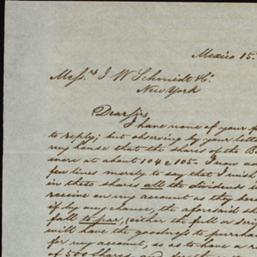 Mexico 15.
Mess.rs J W Schmidt & Co.
New York
Dear Sirs,
I have none of your f
to reply; but observing by your lette
my house that the share of the Ba
were at about 104 @ 105. I now a
few lines merely to say that I wish
in these shares all the dividends
receive on my account as they bec
if by any chance, the aforesaid sh
fall to par, (either the full or di
will have the goodness to purcha
for my account, so as to have a
of 500 shares, and